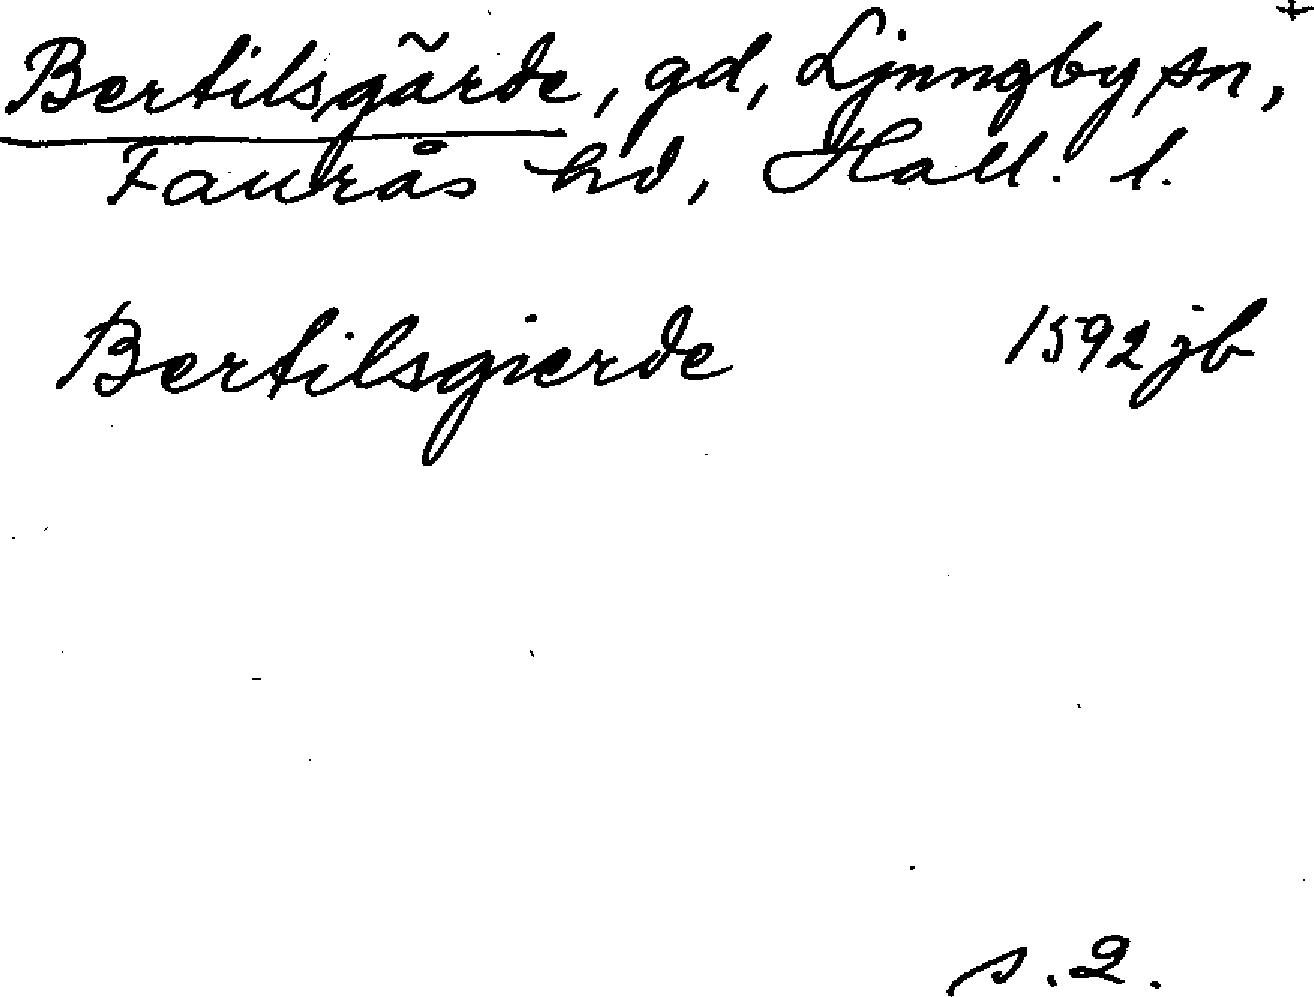 +
Bertilsgärde, gd, Ljungby sn,
Faurås hd, Hall. l.
Bertilsgierde 1592 jb
s. 2.